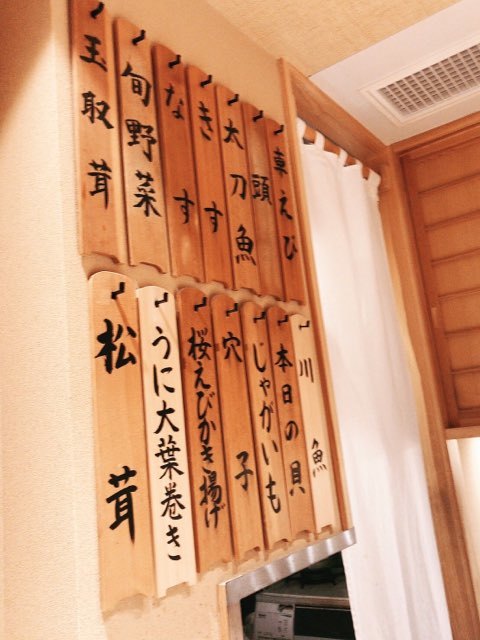 車えび
頭
太刀魚
きす
なす
旬野菜
玉取茸
川魚
本日の貝
じゃがいも
穴子
桜えびかき揚げ
うに大葉巻き
松茸